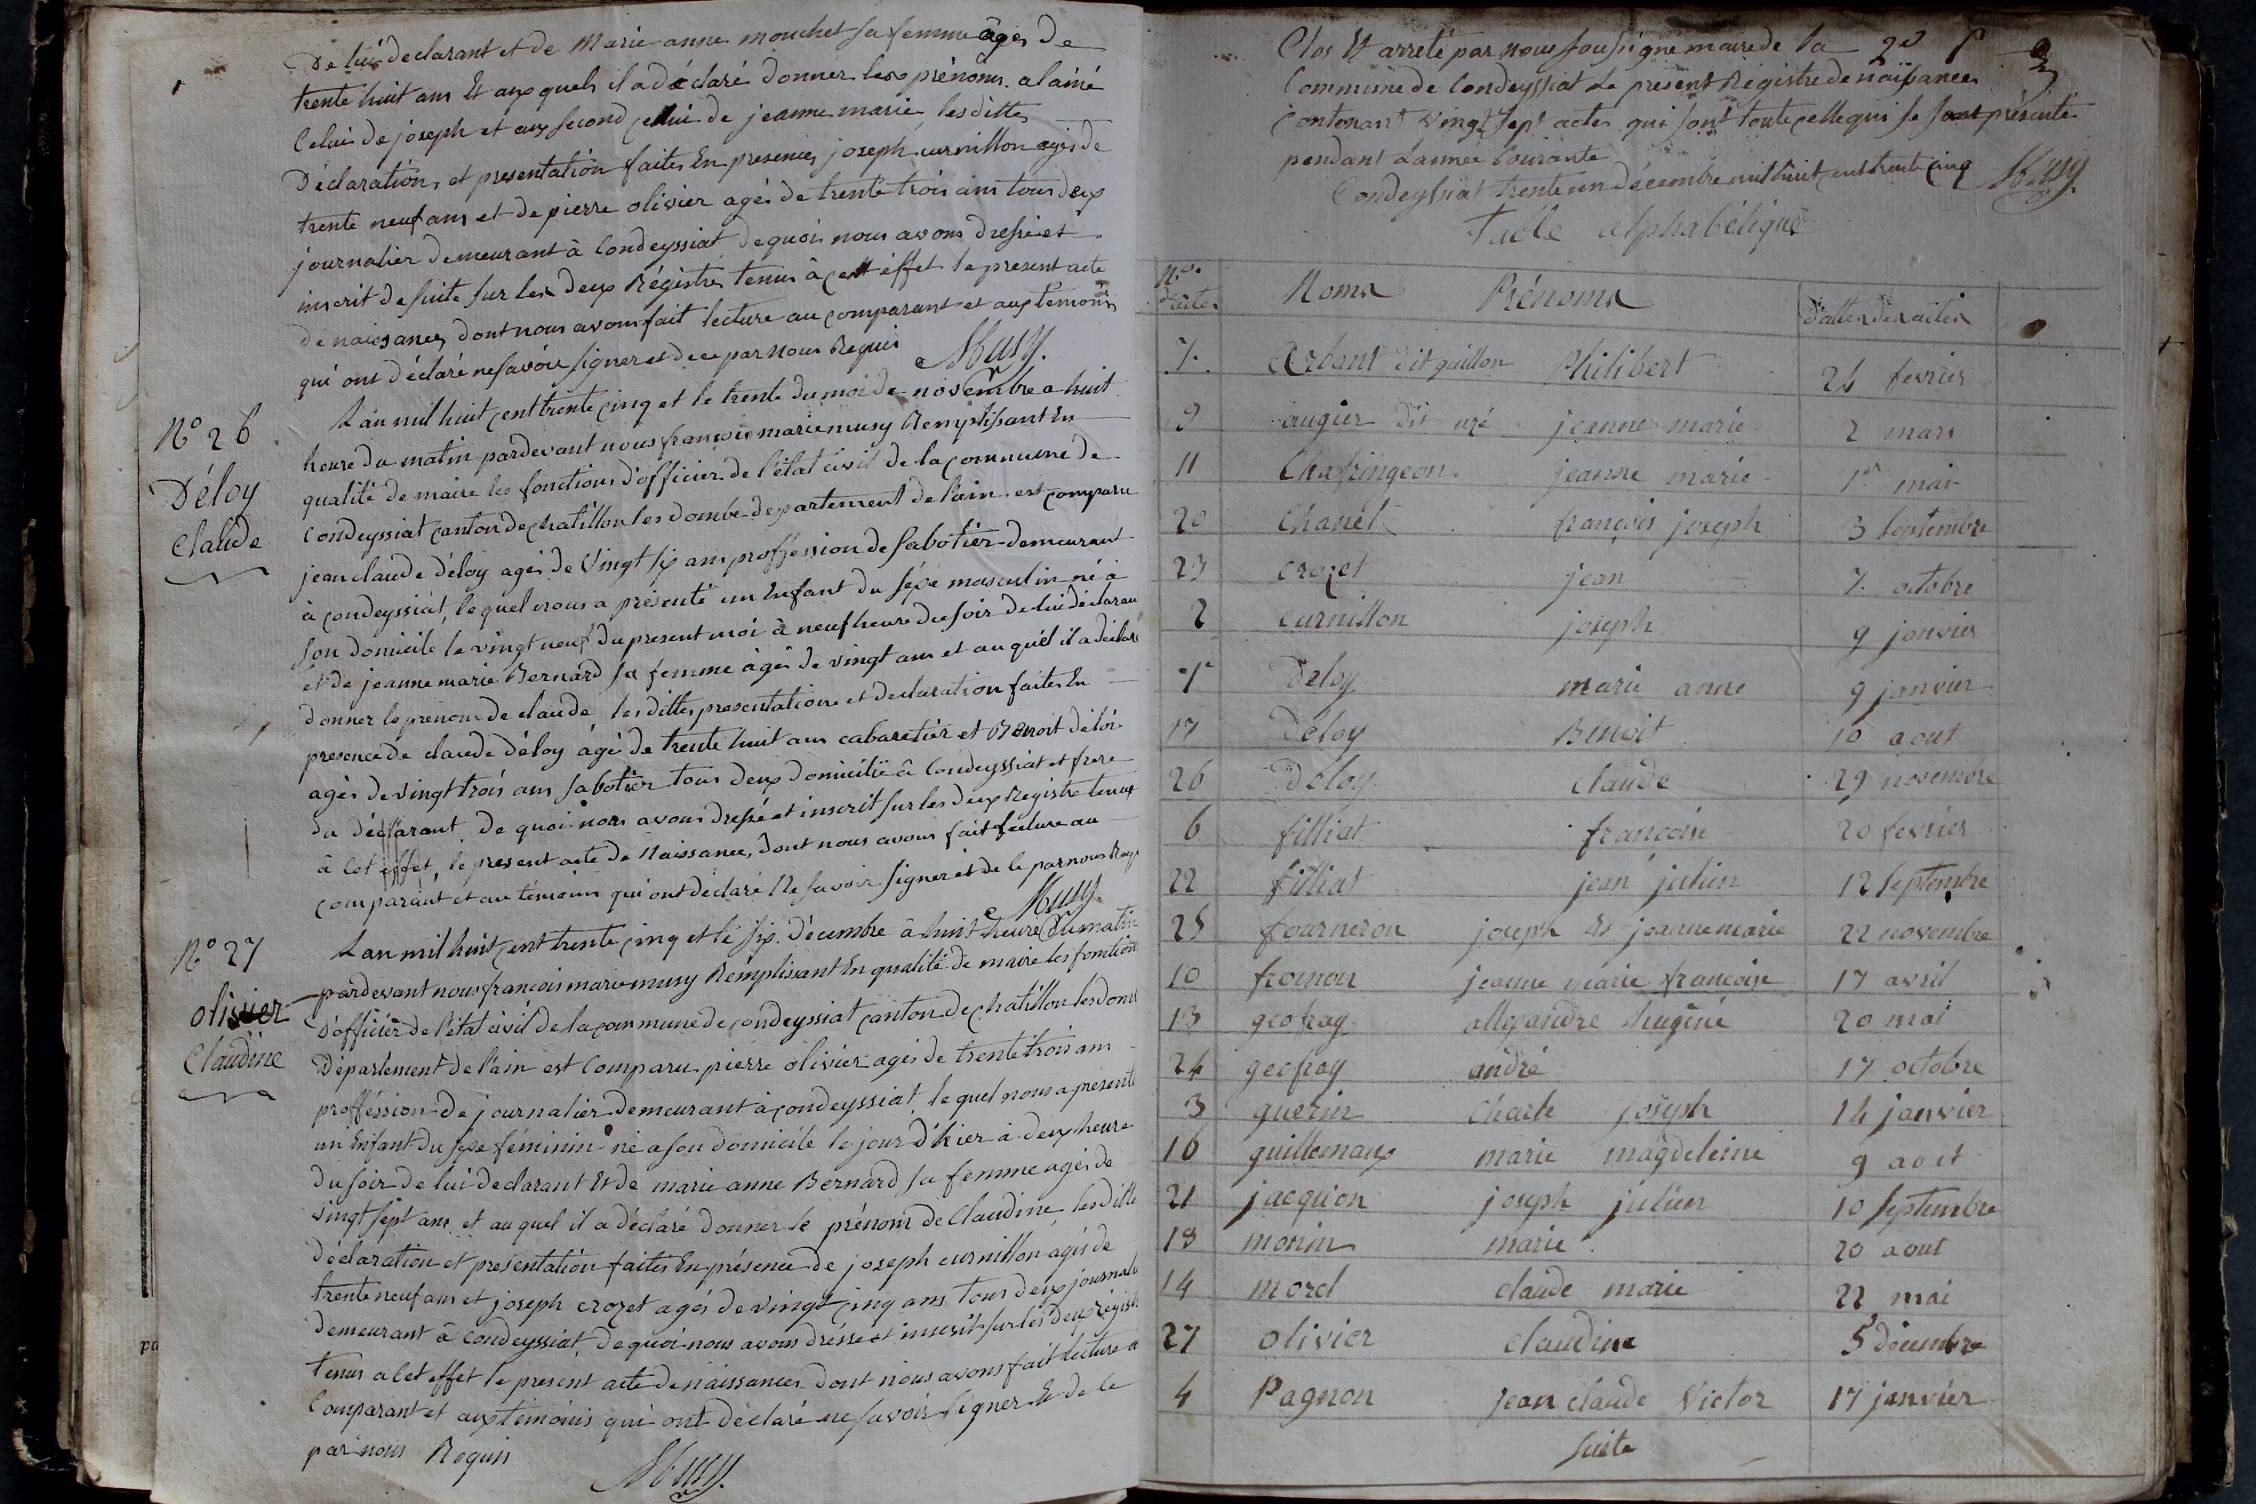 De lui déclarant et de Marie anne mouchet sa femme âgés de
trente huit ans Et aux quels il a déclaré donner les prénoms. a lainé
Celui de joseph et aux second celui de jeanne marie, les dittes
Déclarations et presentation faites En presences joseph curnillon agés de
trente neuf ans et de pierre olivier agés de trente trois ans tous deux
journalier demeurant à Condeyssiat de quoi nous avons dressé et
inscrit de suite sur les deux Régistres tenus à cett éffet le present acte
de naissances dont nous avons fait lecture au comparant et aux témoins
qui ont déclaré ne savoir signer et de ce par nous Requis
Musy.
N° 26
Déloy
Claude
L'an mil huit cent trente cinq et le trente du moi de novembre a huit
heure du matin pardevant nous françois marie musy Remplissant En
qualité de maire les fonctions d'officier de l'état civil de la commune de
Condeyssiat canton de chatillon les dombe departement de l'ain est comparu
jean claude déloy agés de vingt six ans proffession de sabotier demeurant
à condeyssiat, le quel nous a présenté un Enfant du séxe masculin né à
son domicile le vingt neuf du present moi à neuf heure du soir de lui déclarau
et de jeanne marie Bernard sa femme âgé de vingt ans et au quél il a déclaré
donner le prénom de claude, les dittes presentations et declaration faites En
presence de claude déloy âgé de trente huit ans cabaretiér et Benoit déloi
agés de vingt trois ans sabotier tous deux domicilié à Condeyssiat et frere
du déclarant De quoi nous avons dressé et inscrit sur les deux Registre tenus
à cet éffet, le present acte de Naissance, dont nous avons fait lecture au
comparant et au témoins qui ont déclaré Ne savoir signer et de le par nous Requ
Musy
N° 27
olivier
Claudine
L'an mil huit cent trente cinq et le six décembre à huit heure du matin
pardevant nous françois marie musy Remplissant En qualité de maire les fonctions
d'officier de l'état civil de la commune de condeyssiat canton de chatillon les domb
Département de l'ain est Comparu pierre olivier agés de trente trois ans
proffession de journalier demeurant à condeyssiat, le quel nous a presenté
un Enfant du sexe féminin né a son domicile le jour d'hier à deux heure
du soir de lui declarant Et de marie anne Bernard sa femme agés de
vingt sept ans et au quel il a déclaré donner le prénom de Claudine, les ditte
déclaration et presentation faites En présence de joseph curnillon agés de
trente neuf ans et joseph crozet agés de vingt cinq ans Tous deux journali
demeurant à condeyssiat, de quoi nous avons dréssé et inscrit sur les deux régistr
tenus a cet effet le present acte de naissances dont nous avons fait lecture a
Comparant et aux témoins qui ont déclaré ne savoir signer Et de le
par nous Requis
Musy.
Clos Et arreté par nous soussigné maire de la
Commune de Condeyssiat Le present Régistre de naissances
Contenant vingt sept actes qui sont toute celle qui se sont présenté
pendant L'année Courante
Condeyssiat trente un décembre mil huit cent trente cinq Musy
Table alphabétique
Nos d'actes Noms Prénoms dattes des actes
7. Arbant dit guillon Philibert 24 fevrier
9 augier dit uré jeanne marie 2 mars
11 Chafringeon jeanne marie 1er mai
20 Chanel françois joseph 3 Septembre
23 crozet jean 7. octobre
2 Curnillon joseph 9 janvier
1r Deloy marie anne 9 janvier
17 Déloy Benoit 10 aout
26 Déloy Claude 29 novembre
6 filliat françoise 20 fevrier
22 filliat jean julien 12 Septembre
25 fourneron joseph Et jeanne marie 22 novembre
10 fromon jeanne marie françoise 17 avril
13 geofray allexandre Eugéne 20 mai
24 geofray andré 17 octobre
3 guerin Charle joseph 14 janvier
16 guillemaux marie magdeleine 9 aout
21 jacquion joseph julien 10 Septembre
18 monin marie 20 aout
14 morel claude marie 22 mai
27 olivier Claudine 5 décembre
4 Pagnon Jean Claude Victor 17 janvier
Suite